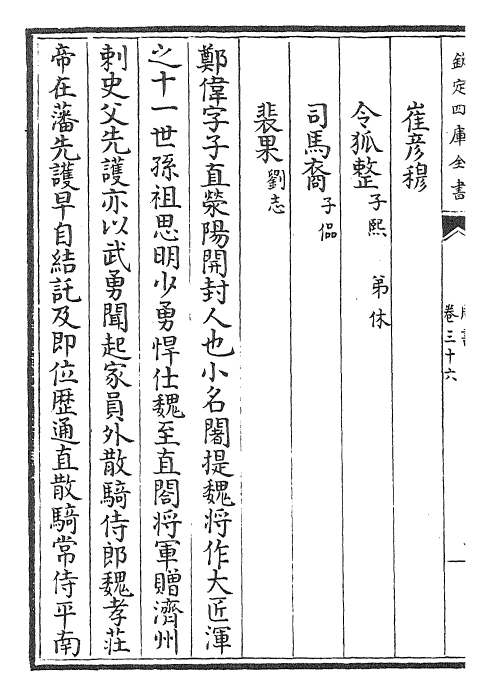 欽定四庫全書
卷三十六
崔彦穆
令狐整 子熙 弟休
司馬裔 子侃
裴果 劉志
鄭偉字子直滎陽開封人也小名闍提魏將作大匠渾
之十一世孫祖思明少勇悍仕魏至直閤將軍贈濟州
刺史父先護亦以武勇聞起家員外散騎侍郎魏孝莊
帝在藩先護早自結託及即位歴通直散騎常侍平南